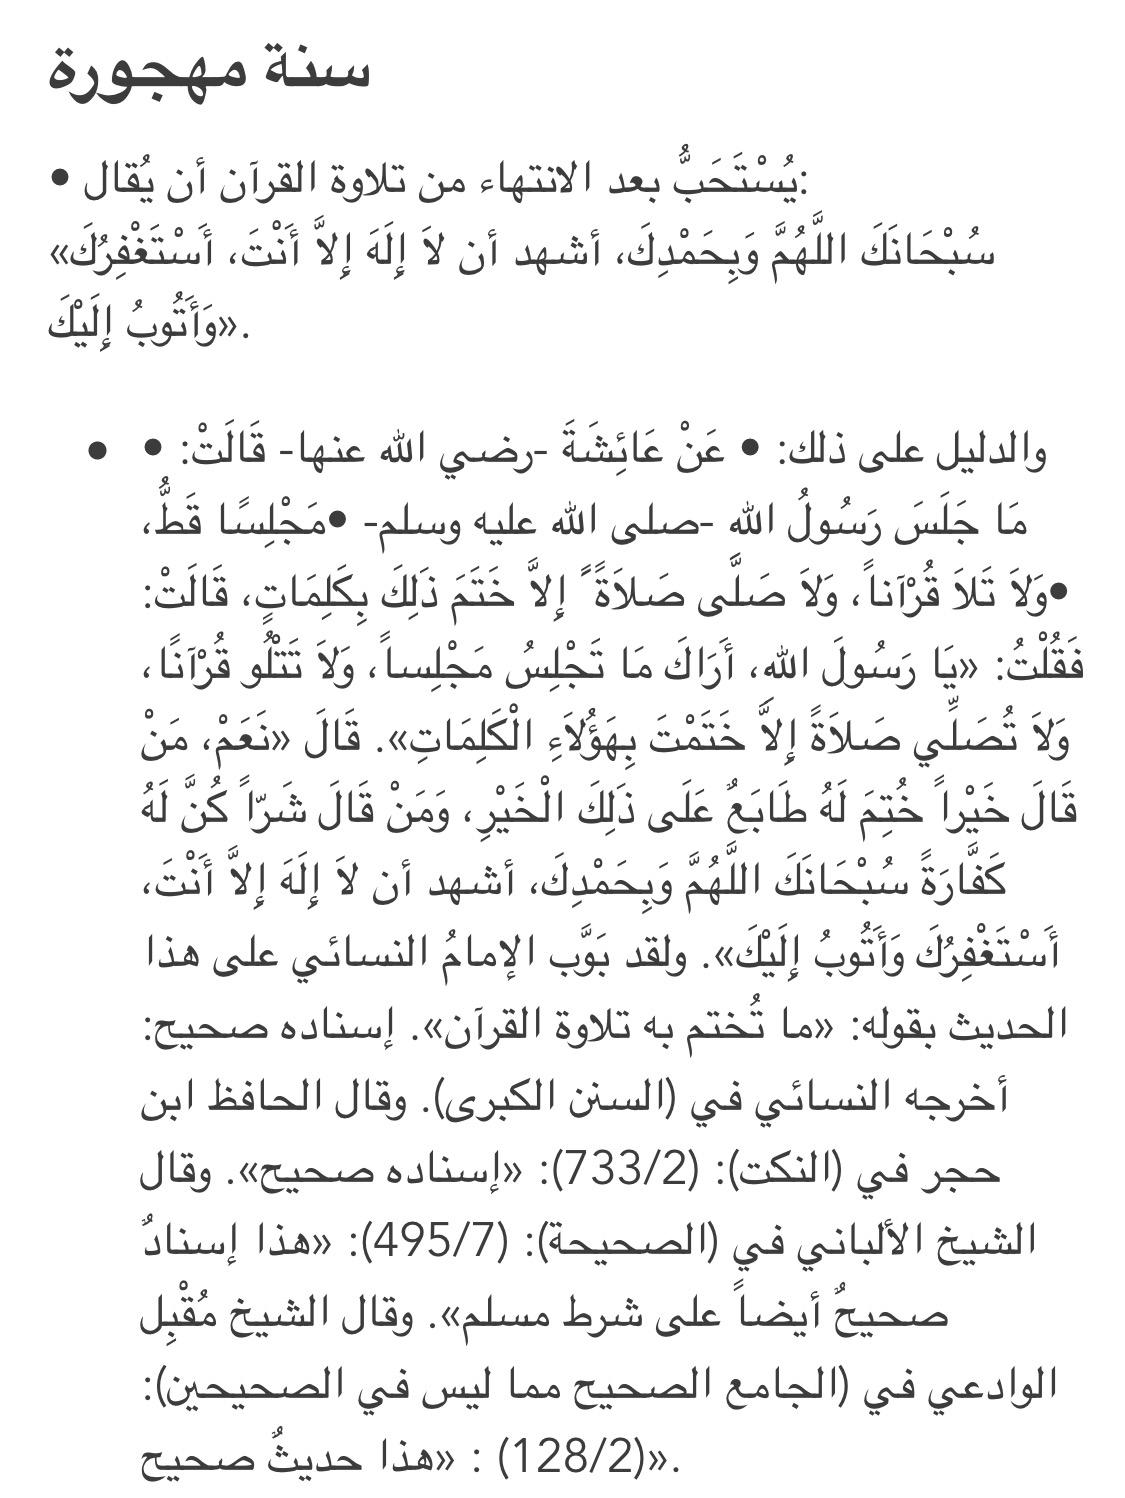 سنة مهجورة
• يُسْتَحَبُّ بعد الانتهاء من تلاوة القرآن أن يُقال:
«سُبْحَانَكَ اللَّهُمَّ وَبِحَمْدِكَ، أشهد أن لاَ إِلَهَ إِلاَّ أَنْتَ، أَسْتَغْفِرُكَ
وَأَتُوبُ إِلَيْكَ».
• والدليل على ذلك: • عَنْ عَائِشَةَ -رضي الله عنها- قَالَتْ: •
مَا جَلَسَ رَسُولُ الله -صلى الله عليه وسلم- •مَجْلِسًا قَطُّ،
•وَلاَ تَلاَ قُرْآناً، وَلاَ صَلَّى صَلاَةً ً إِلاَّ خَتَمَ ذَلِكَ بِكَلِمَاتٍ، قَالَتْ:
فَقُلْتُ: «يَا رَسُولَ الله، أَرَاكَ مَا تَجْلِسُ مَجْلِساً، وَلاَ تَتْلُو قُرْآنًا،
وَلاَ تُصَلِّي صَلاَةً إِلاَّ خَتَمْتَ بِهَؤُلاَءِ الْكَلِمَاتِ». قَالَ «نَعَمْ، مَنْ
قَالَ خَيْراً خُتِمَ لَهُ طَابَعٌ عَلَى ذَلِكَ الْخَيْرِ، وَمَنْ قَالَ شَرّاً كُنَّ لَهُ
كَفَّارَةً سُبْحَانَكَ اللَّهُمَّ وَبِحَمْدِكَ، أشهد أن لاَ إِلَهَ إِلاَّ أَنْتَ،
أَسْتَغْفِرُكَ وَأَتُوبُ إِلَيْكَ». ولقد بَوَّب الإمامُ النسائي على هذا
الحديث بقوله: «ما تُختم به تلاوة القرآن». إسناده صحيح:
أخرجه النسائي في (السنن الكبرى). وقال الحافظ ابن
حجر في (النكت): (733/2): «إسناده صحيح». وقال
الشيخ الألباني في (الصحيحة): (495/7): «هذا إسنادٌ
صحيحٌ أيضاً على شرط مسلم». وقال الشيخ مُقْبِل
الوادعي في (الجامع الصحيح مما ليس في الصحيحين):
(128/2) : «هذا حديثٌ صحيح».